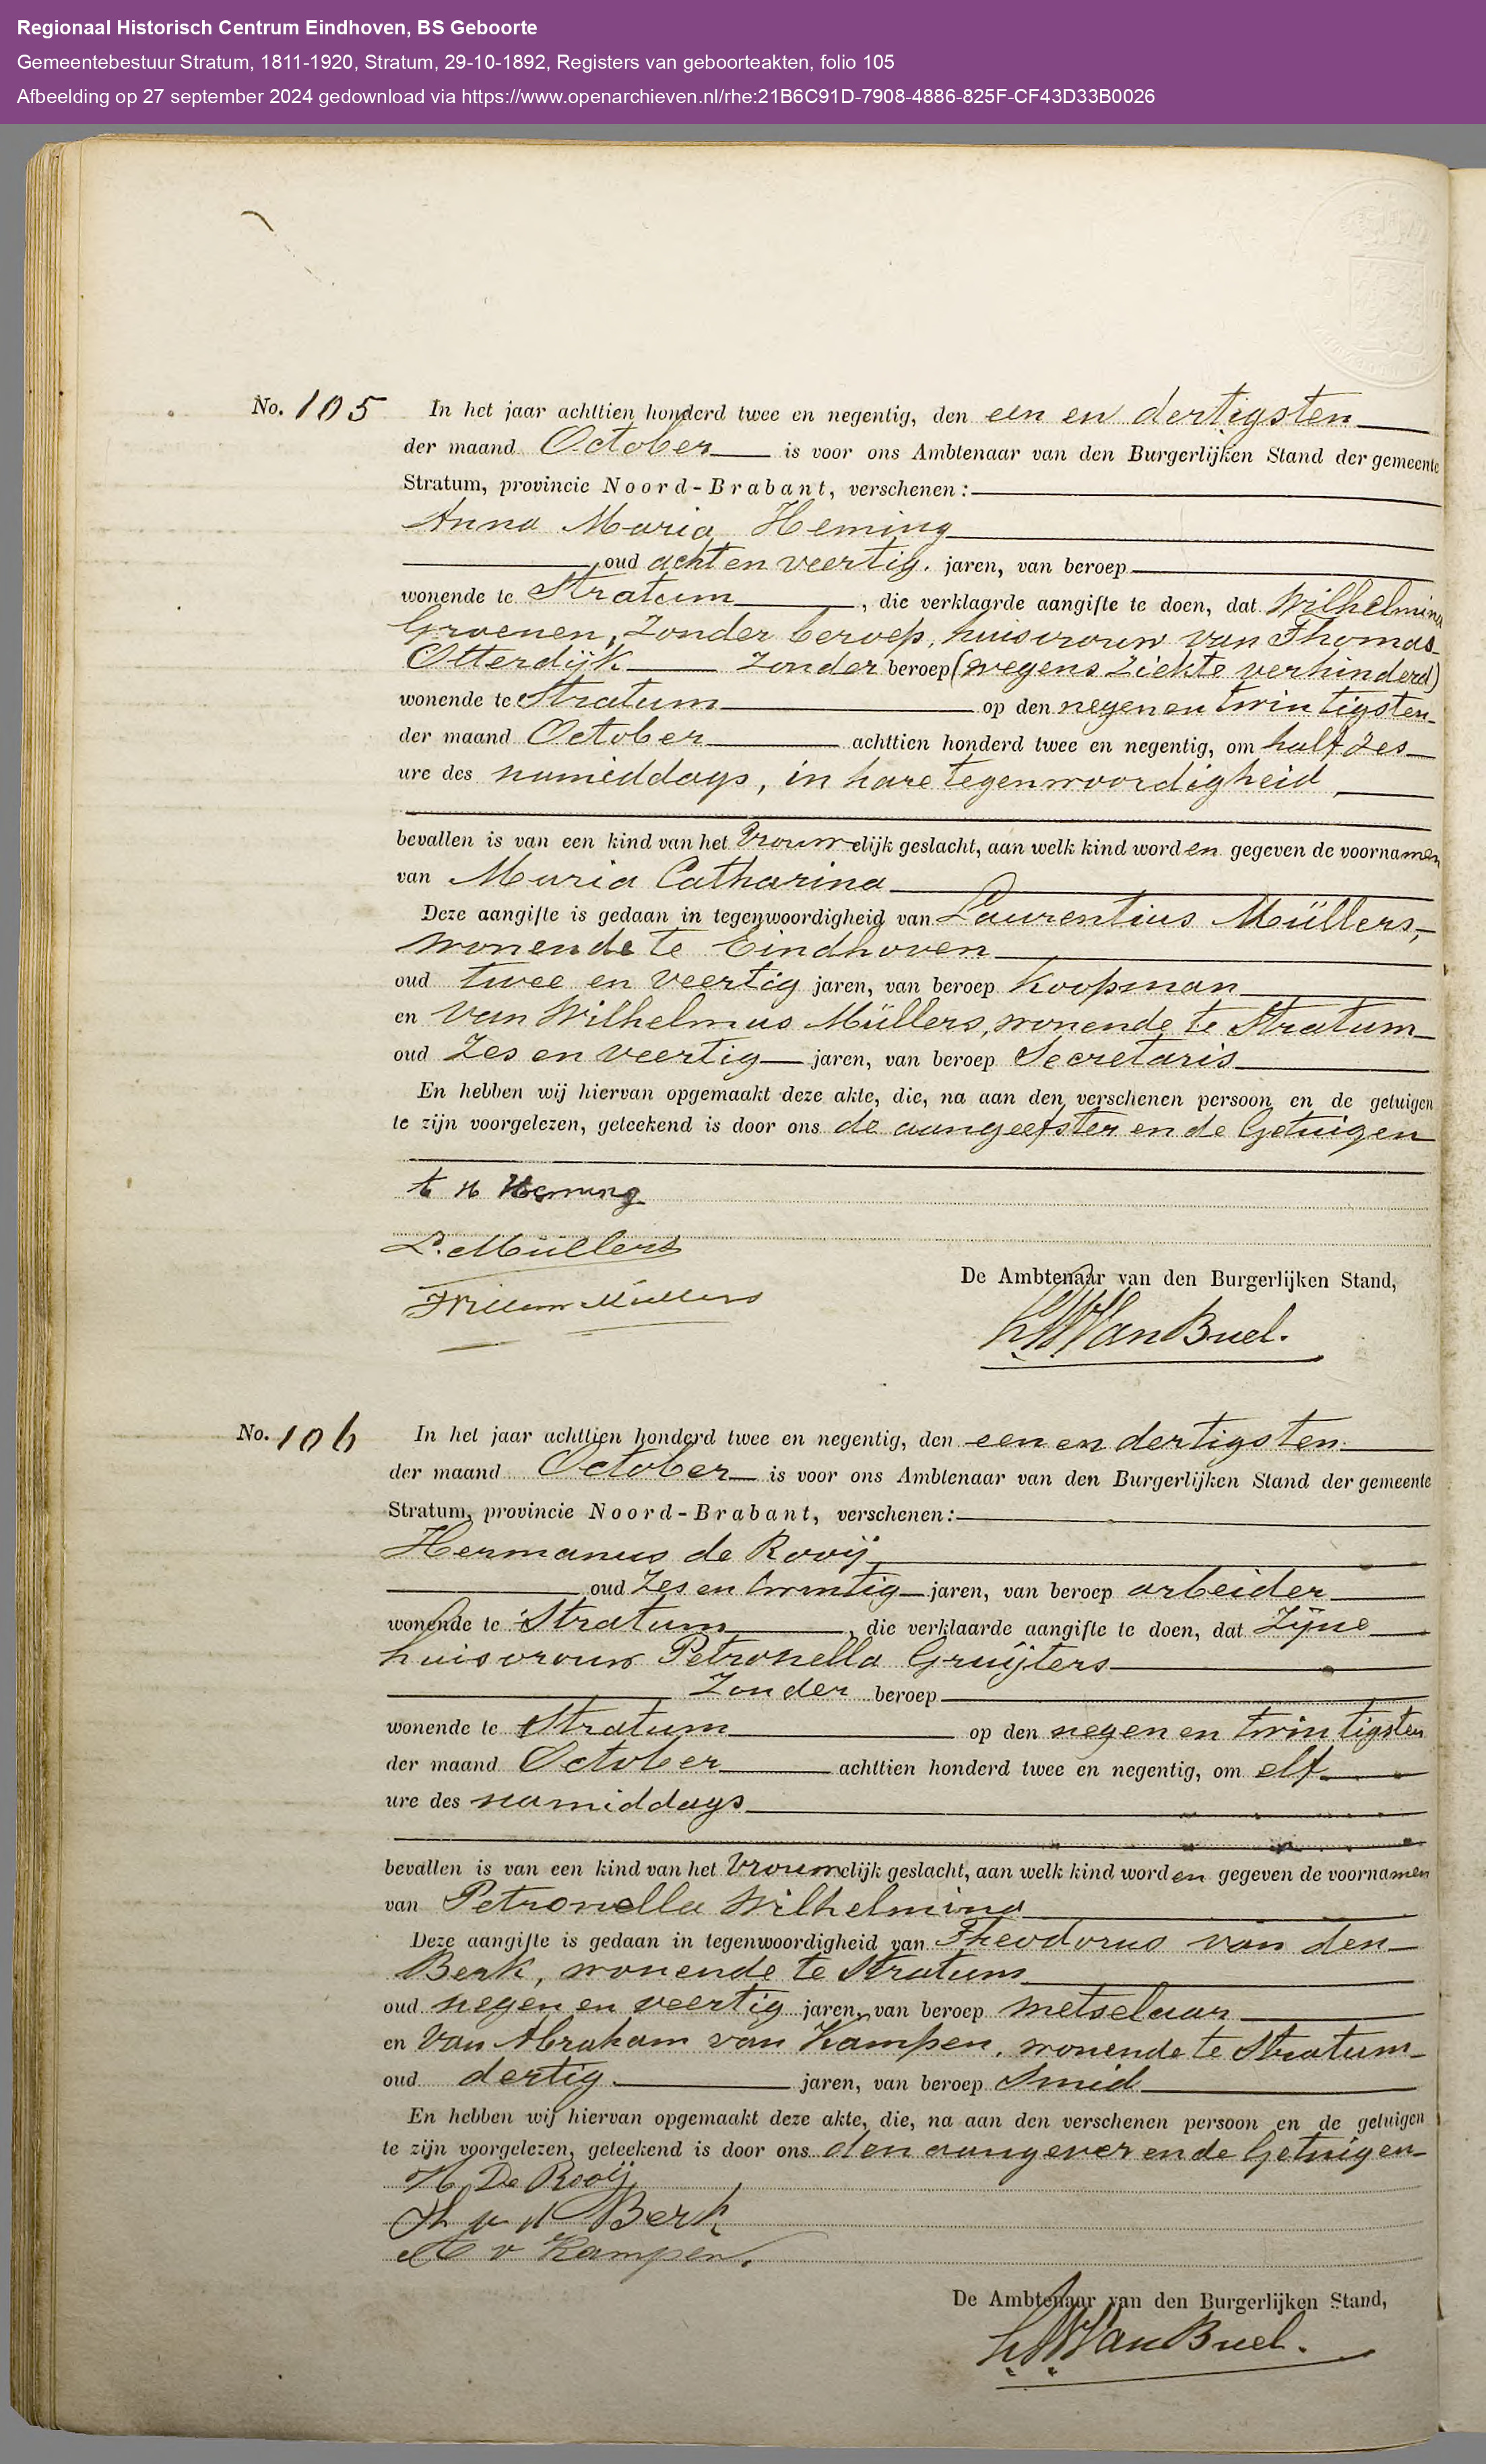 Regionaal Historisch Centrum Eindhoven, BS Geboorte
Gemeentebestuur Stratum, 1811-1920, Stratum, 29-10-1892, Registers van geboorteakten, folio 105
Afbeelding op 27 september 2024 gedownload via https://www.openarchieven.nl/rhe:21B6C91D-7908-4886-825F-CF43D33B0026
No. 105 In het jaar achttien honderd twee en negentig, den een en dertigsten
der maand October is voor ons Ambtenaar van den Burgerlijken Stand der gemeente
Stratum, provincie Noord-Brabant, verschenen:
Anna Maria Heming
oud acht en veertig. jaren, van beroep
wonende te Stratum, die verklaarde aangifte te doen, dat Wilhelmina
Groenen, zonder beroep, huisvrouw van Thomas
Otterdijk zonder beroep (wegens ziekte verhinderd)
wonende te Stratum op den negen en twintigsten
der maand October achttien honderd twee en negentig, om half zes
ure des namiddags, in hare tegenwoordigheid,
bevallen is van een kind van het Vrouwelijk geslacht, aan welk kind worden gegeven de voornamen
van Maria Catharina
Deze aangifte is gedaan in tegenwoordigheid van Laurentius Müllers,
wonende te Eindhoven
oud twee en veertig jaren, van beroep Koopman
en van Wilhelmus Müllers, wonende te Stratum
oud Zes en veertig jaren, van beroep Secretaris
En hebben wij hiervan opgemaakt deze akte, die, na aan den verschenen persoon en de getuigen
te zijn voorgelezen, geteekend is door ons de aangeefster en de Getuigen
Heming
L. Müllers
Willem Müllers
De Ambtenaar van den Burgerlijken Stand,
Van Buel.
No. 106 In het jaar achttien honderd twee en negentig, den een en dertigsten
der maand October is voor ons Ambtenaar van den Burgerlijken Stand der gemeente
Stratum, provincie Noord-Brabant, verschenen:
Hermanus de Rooij
oud Zes en twintig jaren, van beroep arbeider
wonende te Stratum, die verklaarde aangifte te doen, dat Zijne
huisvrouw Petronella Gruijters
Zonder beroep
wonende te Stratum op den negen en twintigsten
der maand October achttien honderd twee en negentig, om elf
ure des namiddags
bevallen is van een kind van het Vrouwelijk geslacht, aan welk kind worden gegeven de voornamen
van Petronella Wilhelmina
Deze aangifte is gedaan in tegenwoordigheid van Theodorus van den
Berk, wonende te Stratum
oud negen en veertig jaren, van beroep metselaar
en van Abraham van Kampen, wonende te Stratum
oud dertig jaren, van beroep Smid
En hebben wij hiervan opgemaakt deze akte, die, na aan den verschenen persoon en de getuigen
te zijn voorgelezen, geteekend is door ons den aangever en de Getuigen
H. De Rooij
Th v d Berk
A v Kampen.
De Ambtenaar van den Burgerlijken Stand,
Van Buel.